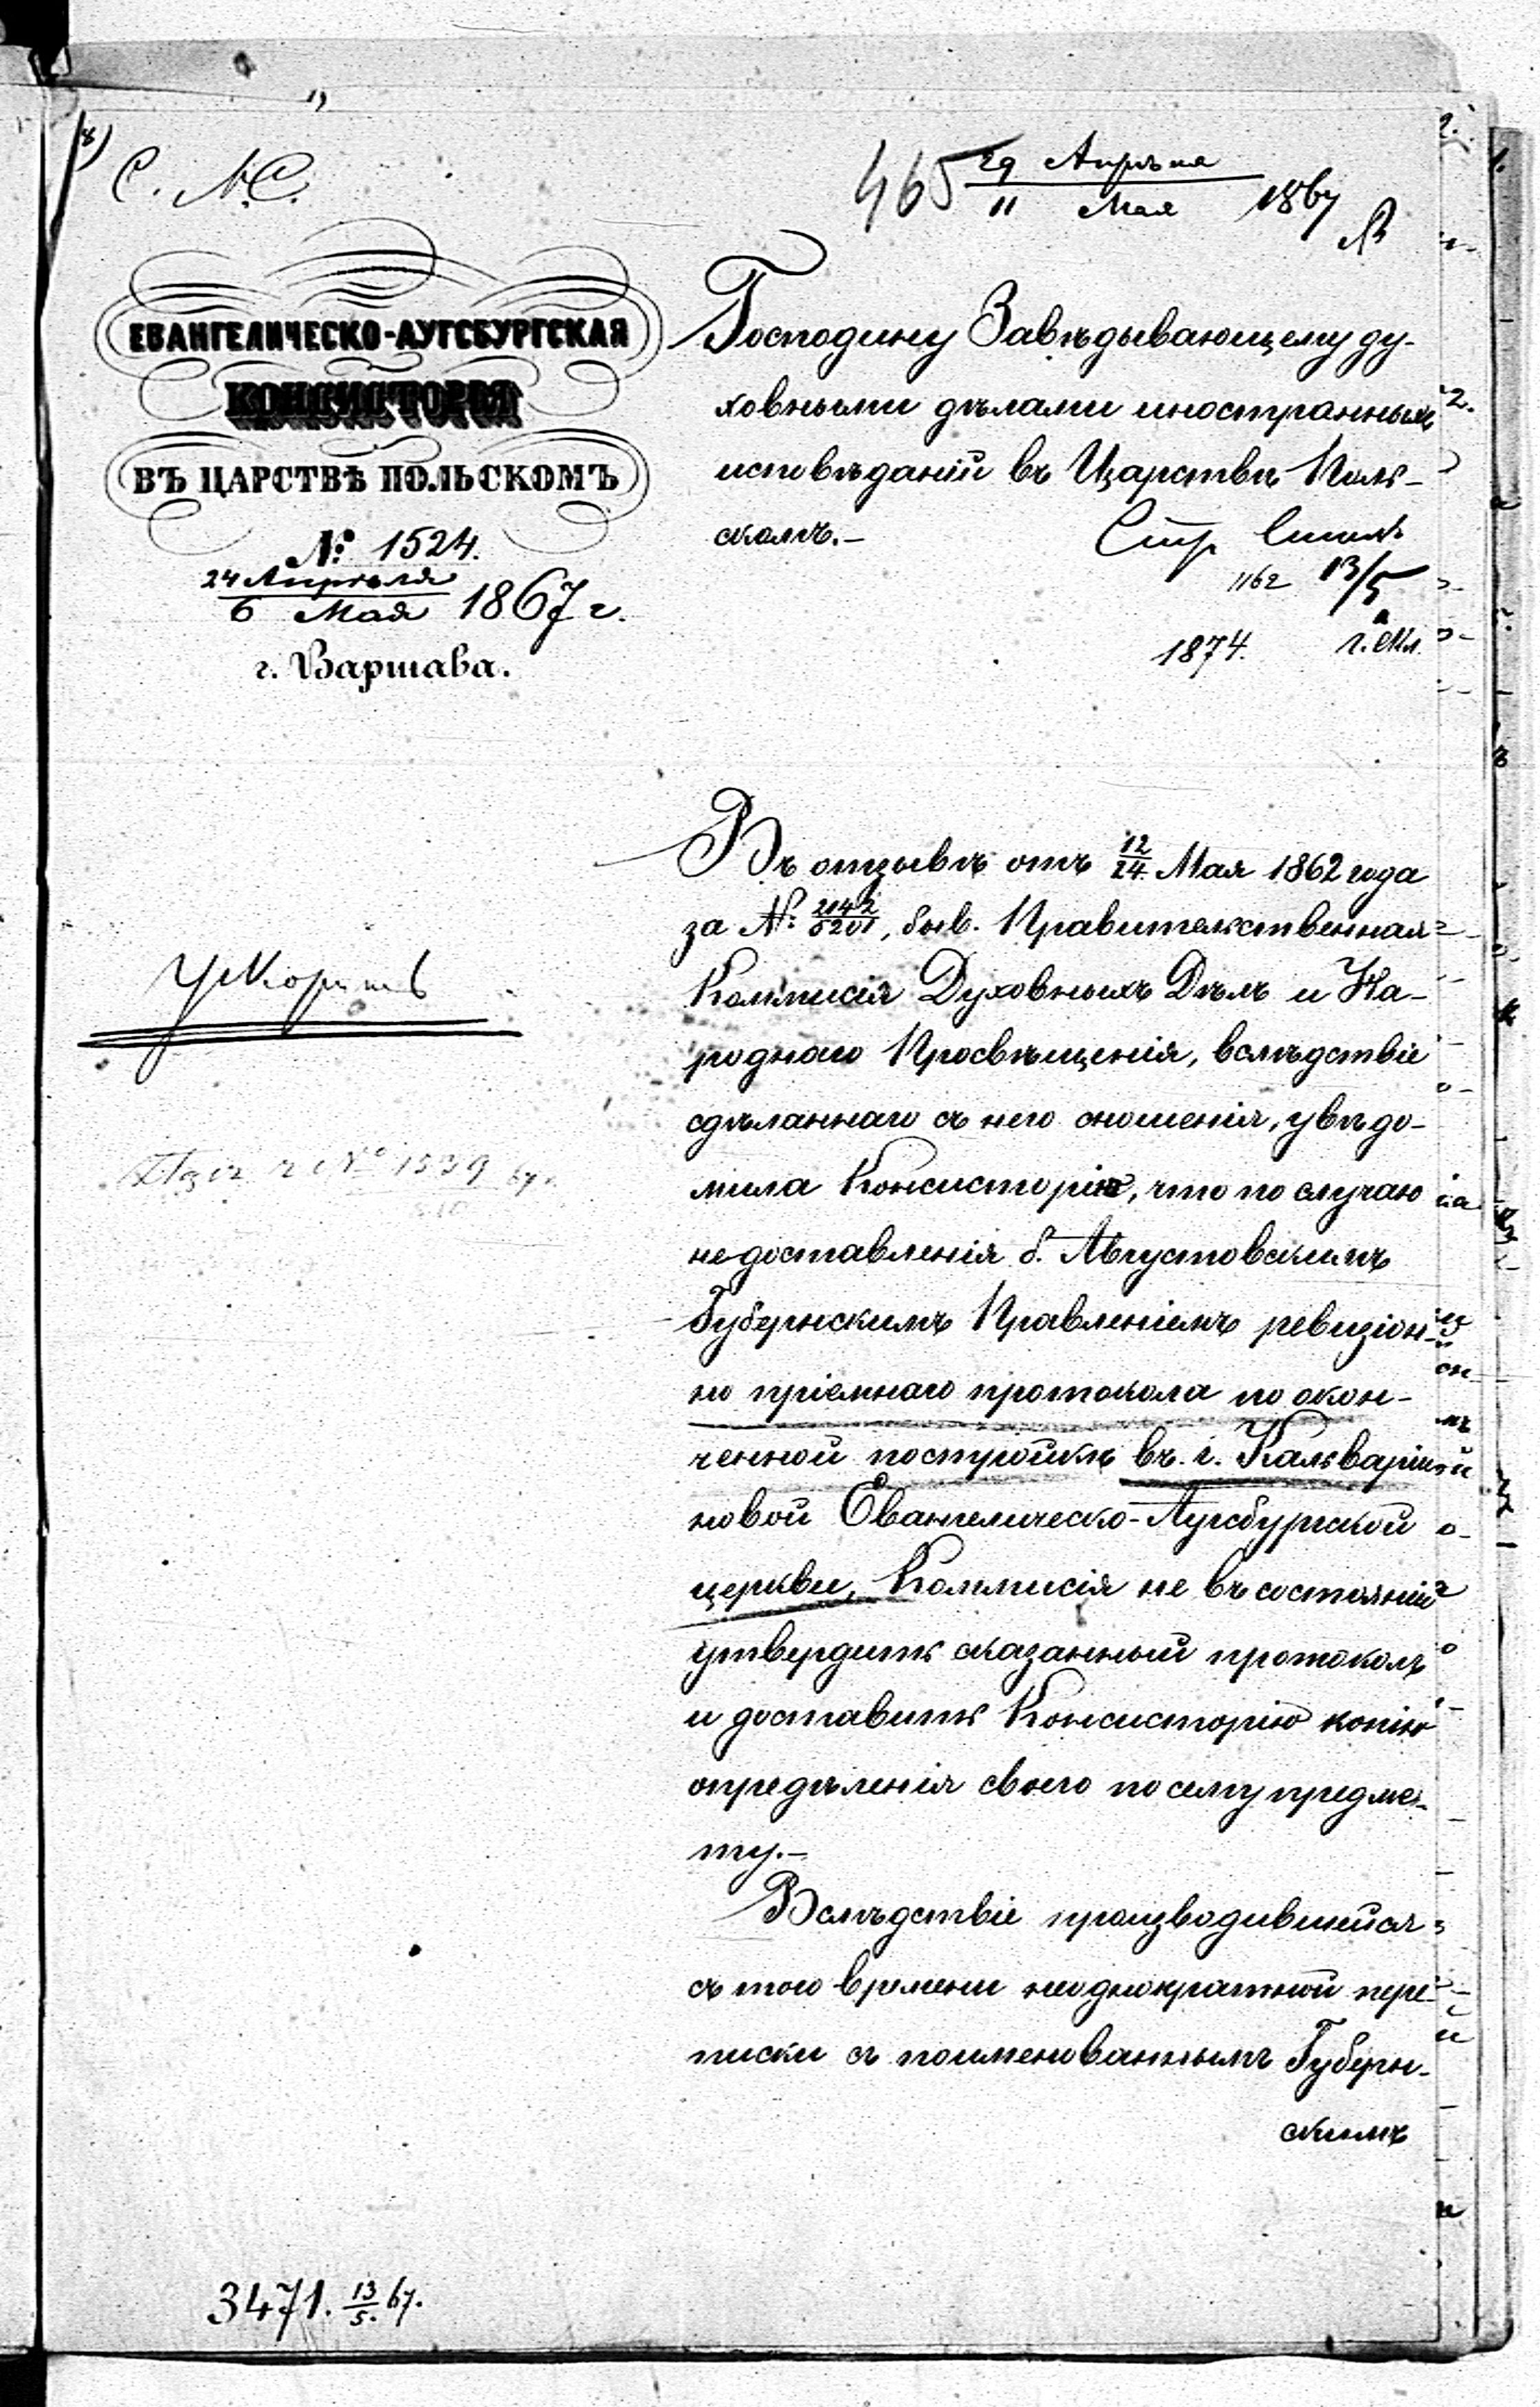 С. №С.
465 29 Апрѣля
11 Мая 1867
ЕВАНГЕЛИЧЕСКО-АУГСБУРГСКАЯ
КОНСИСТОРІЯ
ВЪ ЦАРСТВѢ ПОЛЬСКОМЪ
№: 1524.
24 Апрѣля
6 Мая 1867 г.
г. Варшава.
Господину Завѣдывающему ду-
ховными дѣлами иностранныхъ
исповѣданій въ Царствѣ Поль-
скомъ.-
1162 13/5
1874.
Въ отзывѣ отъ 12/24 Мая 1862 года
за №: 2142/5201, быв. Правительственная
Коммисія Духовныхъ Дѣлъ и На-
роднаго Просвѣщенія, вслѣдствіе
сдѣланнаго съ него сношенія, увѣдо-
мила Консисторію, что по случаю
недоставленія б. Августовскимъ
Губернскимъ Правленіемъ ревизіон-
но пріемнаго протокола по окон-
ченной постройкѣ въ г. Кальваріи
новой Евангелическо-Аугсбургской
церкви, Коммисія не въ состояніи
утвердить сказанный протоколъ
и доставить Консисторію копію
опредѣленія своего по сему предме-
ту.-
Вслѣдствіе производившейся
съ того времени неоднократной пере-
писки съ поименованнымъ Губерн-
скимъ
Ускорить
№ 1539 67
3471. 13/5. 67.